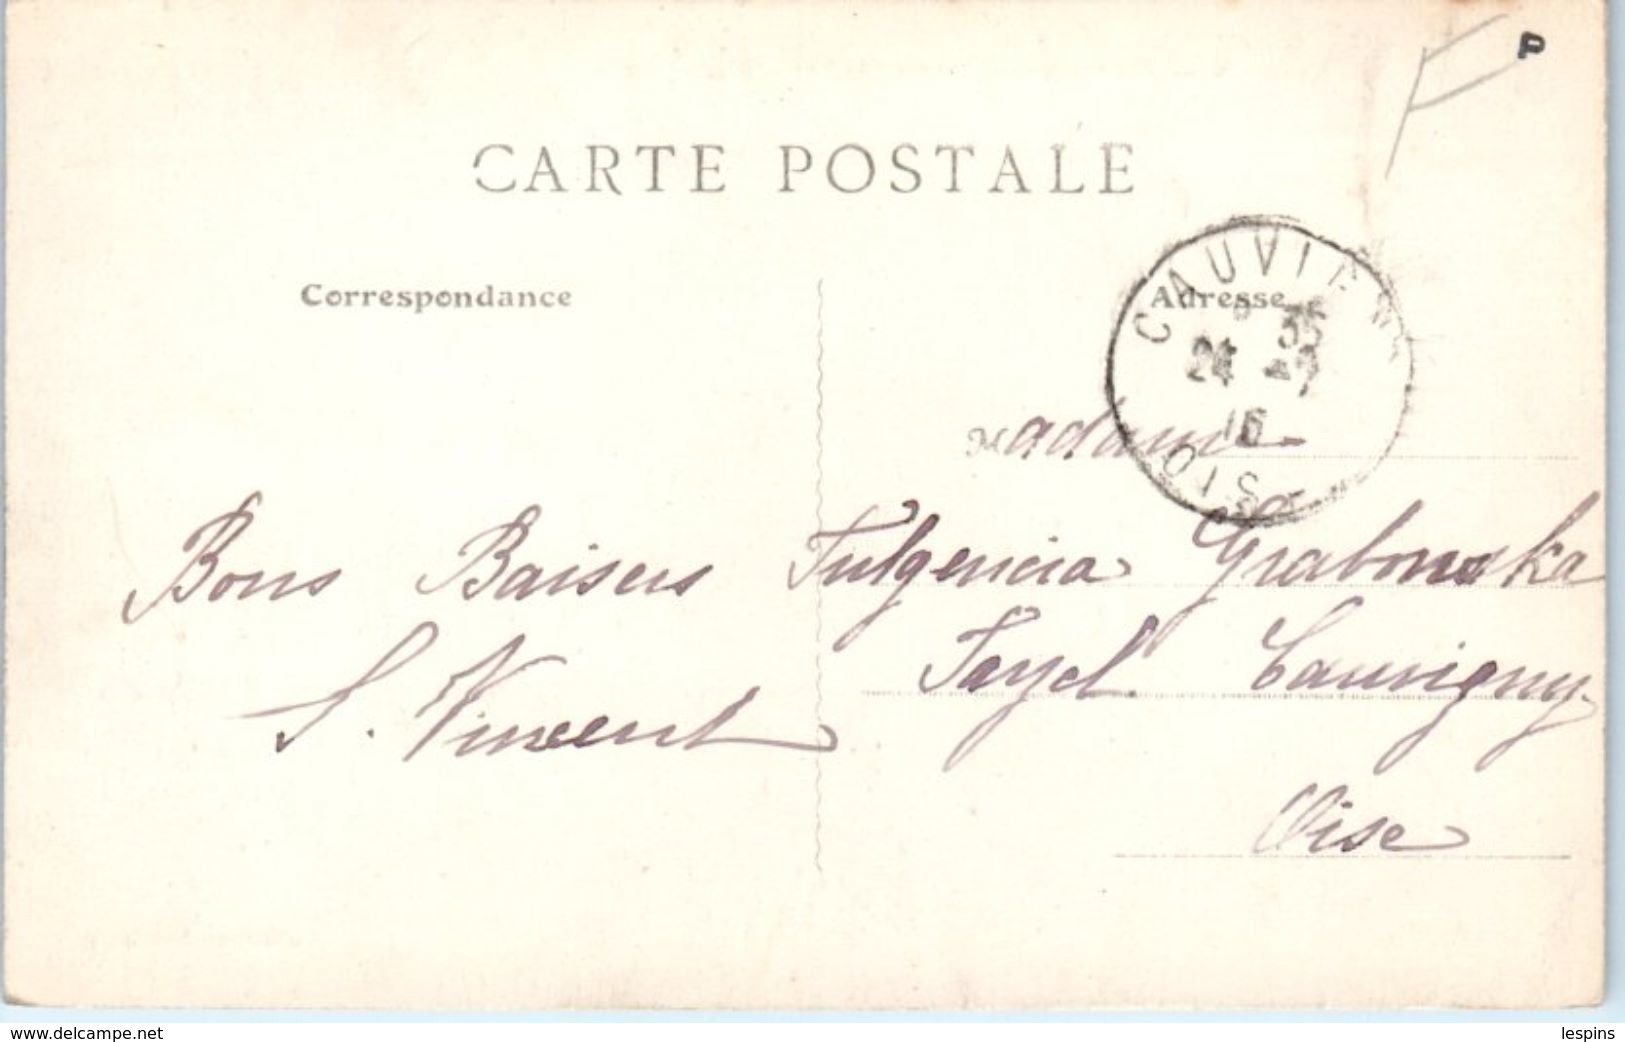 P
CARTE POSTALE
Correspondance
Adresse
CAUVIGNY
35
24 -7
16
OISE
Madame
Bons Baisers
Fulgencia Grabowska
Fayel Cauvigny
S. Vincent
Oise
www.delcampe.net
lespins